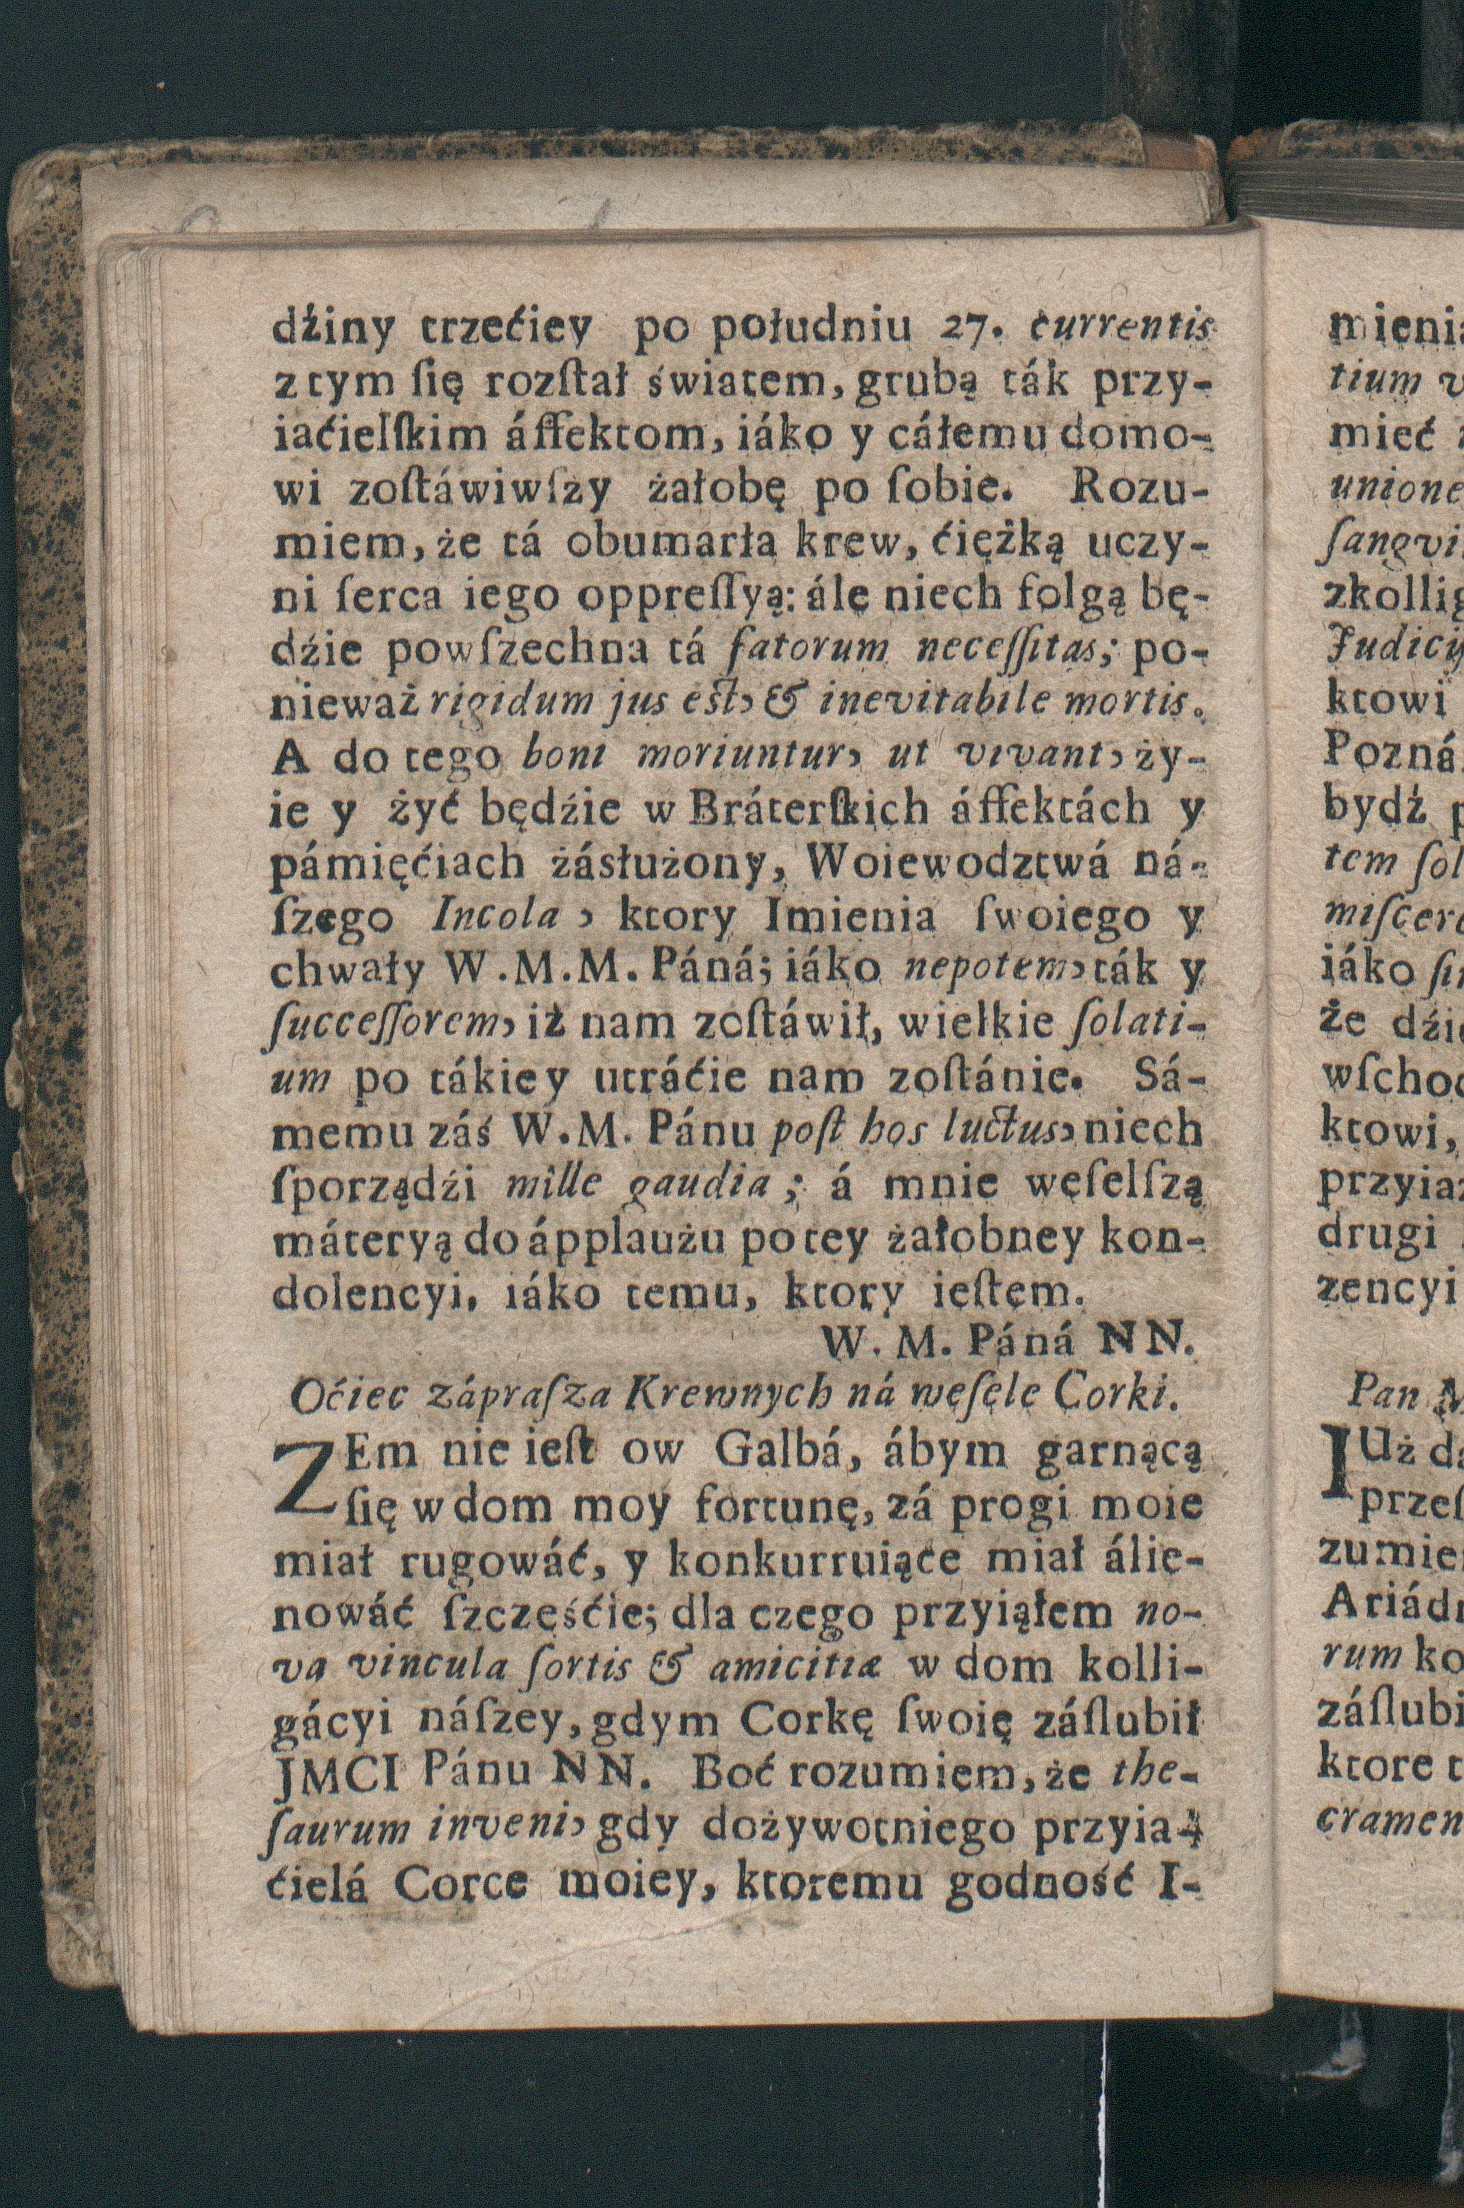 dźiny trzećiey po południu 27. currentis
z tym ſię rozſtał światem, grubą ták przy-
iaćielſkim áffektom, iáko y cáłemu domo-
wi zoſtáwiwſży żałobę po ſobie. Rozu-
miem, że tá obumarła krew, ćiężką uczy-
ni ſerca iego oppreſſyą: ále niech folgą bę-
dźie powſzechna tá fatorum neceſſitas; po-
nieważ rigidum jus eſt, & inevitabile mortis.
A do tego boni moriuntur, ut vivant, ży-
ie y żyć będźie w Bráterſkich áffektách y
pámięćiach żásłużony, Woiewodztwá ná-
ſzego Incola, ktory Imienia ſwoiego y
chwały W.M.M. Páná; iáko nepotem, ták y
ſucceſſorem, iż nam zoſtáwił, wielkie ſolati-
um po tákiey utráćie nam zoſtánie. Sá-
memu záś W.M. Pánu poſt hos luctus, niech
ſporządźi mille gaudia; á mnie weſelſzą
máteryą do ápplaużu po tey żałobney kon-
dolencyi, iáko temu, ktory ieſtem.
W. M. Páná NN.
Oćiec zápraſza Krewnych ná weſele Corki.
ZEm nie ieſt ow Galbá, ábym garnącą
ſię w dom moy fortunę, zá progi moie
miał rugowáć, y konkurruiące miał álie-
nowáć ſzczęśćie; dla czego przyiąłem no-
va vincula ſortis & amicitiæ w dom kolli-
gácyi náſzey, gdym Corkę ſwoię záſlubił
JMCI Pánu NN. Boć rozumiem, że the-
ſaurum inveni, gdy dożywotniego przyia-
ćielá Corce moiey, ktoremu godność I-
tium
mieć
unione
ktowi
bydź
tem
iáko
Że
ktowi,
drugi
zencyi
Pan
rum
ktore